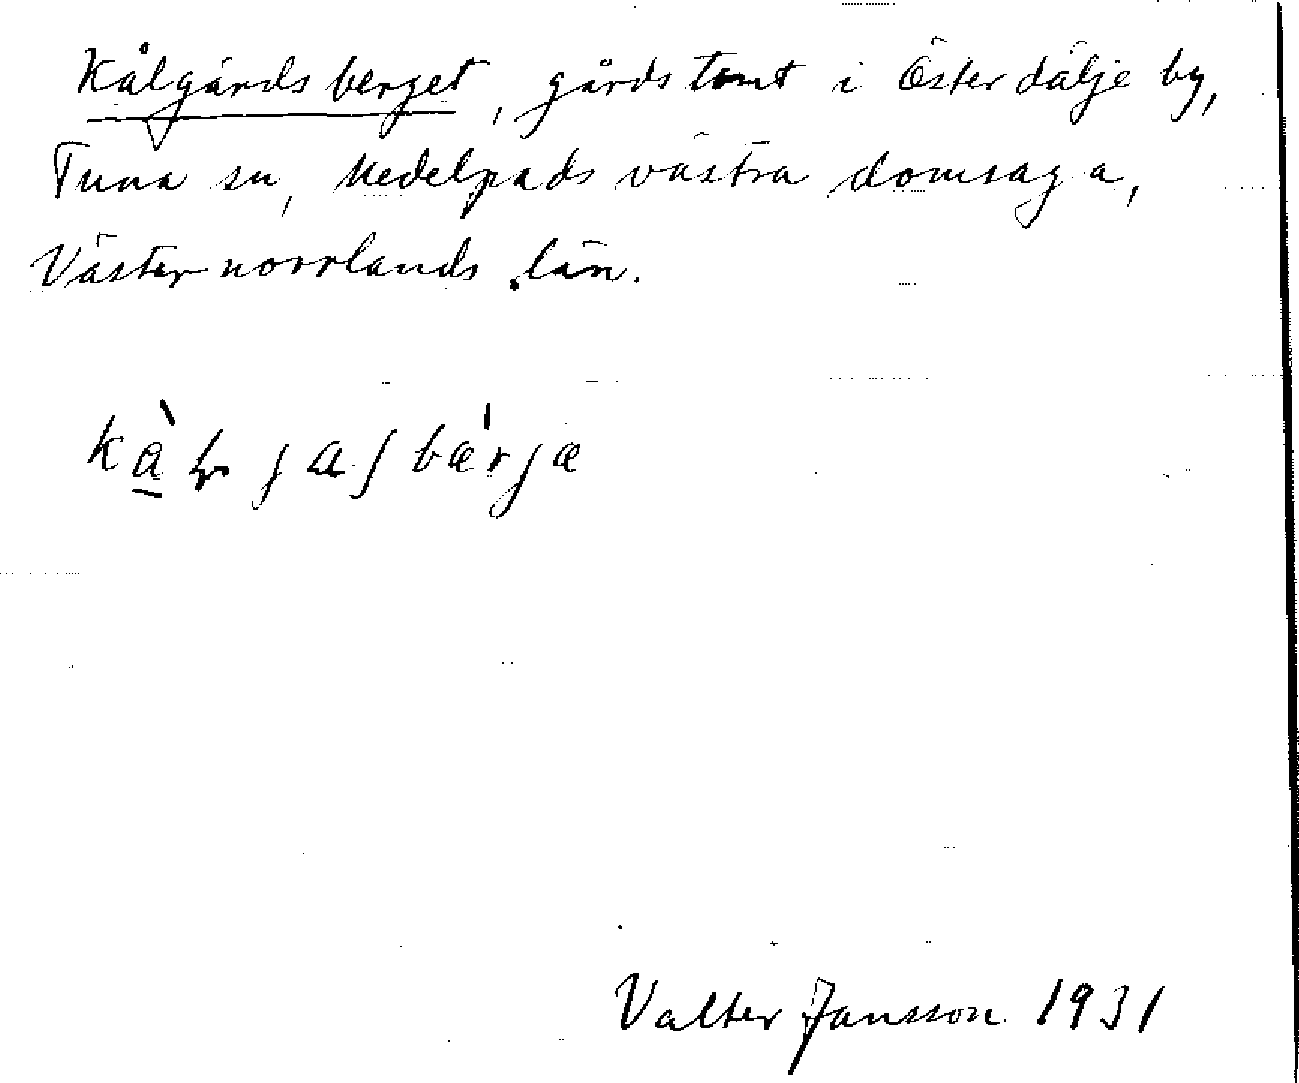 Kålgårdsberget, gårdstomt i Österdälje by,
Tuna sn, Medelpads västra domsaga,
Västernorrlands län.
Valter Jansson 1931